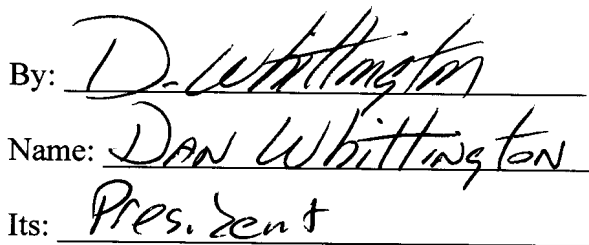 By: D. Whittington
Name: DAN Whittington
Its: President